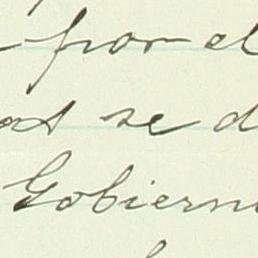 por el
as se d
Gobiern